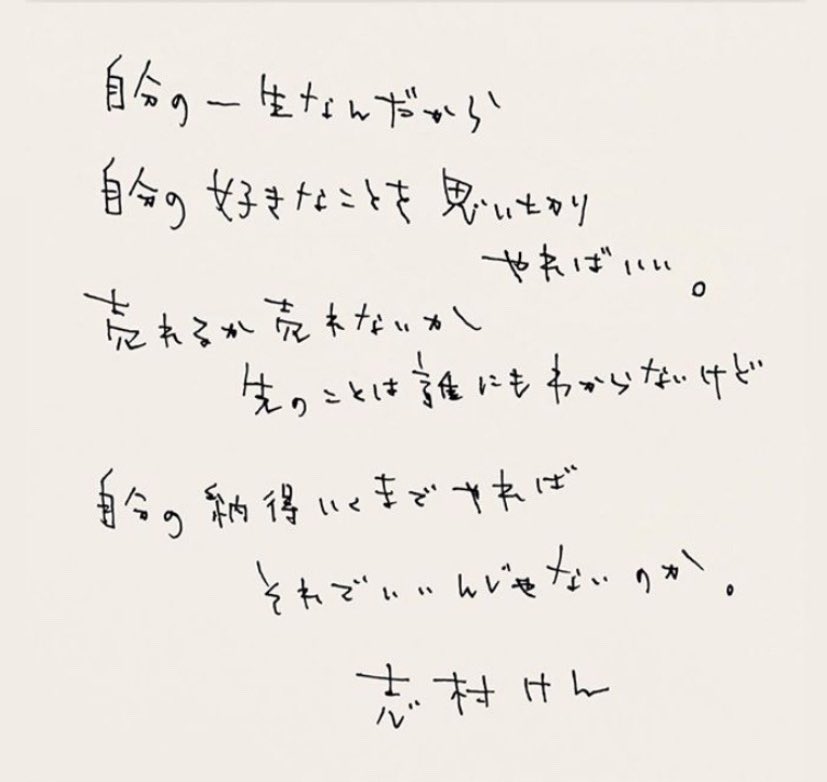 自分の一生なんだから
自分の好きなことを思いっきり
やればいい。
売れるか売れないか
先のことは誰にもわからないけど
自分の納得いくまでやれば
それでいいんじゃないのか。
志村けん